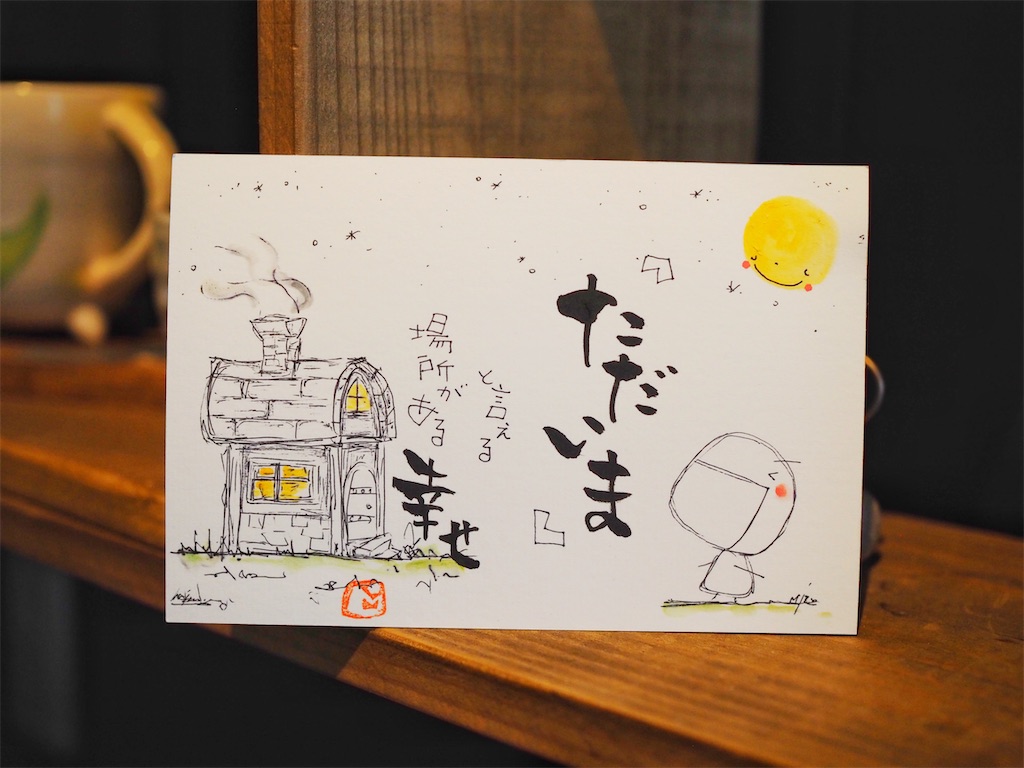 「ただいま」
と言える
場所がある
幸せ